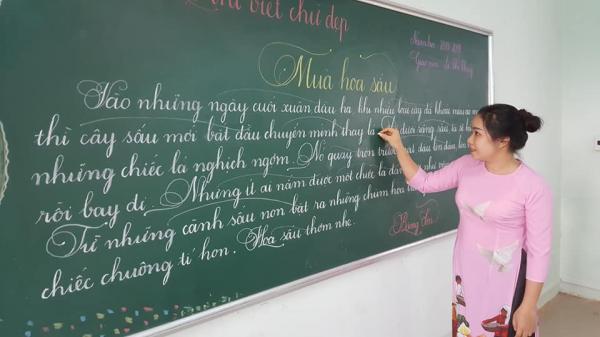 viết chữ đẹp
Năm học
Giáo viên:
Mùa hoa sấu
Vào những ngày cuối xuân đầu hạ, khi nhiều loài cây đã khoác màu áo
thì cây sấu mới bắt đầu chuyển mình thay lá. Đi dưới rặng sấu, ta sẽ
những chiếc lá nghịch ngợm. Nó quay tròn trước mặt, đậu lên đầu,
rồi bay đi. Nhưng ít ai nắm được một chiếc lá đang rơi như
Từ những cành sấu non bật ra những chùm hoa
chiếc chuông tí hon. Hoa sấu thơm nhẹ.